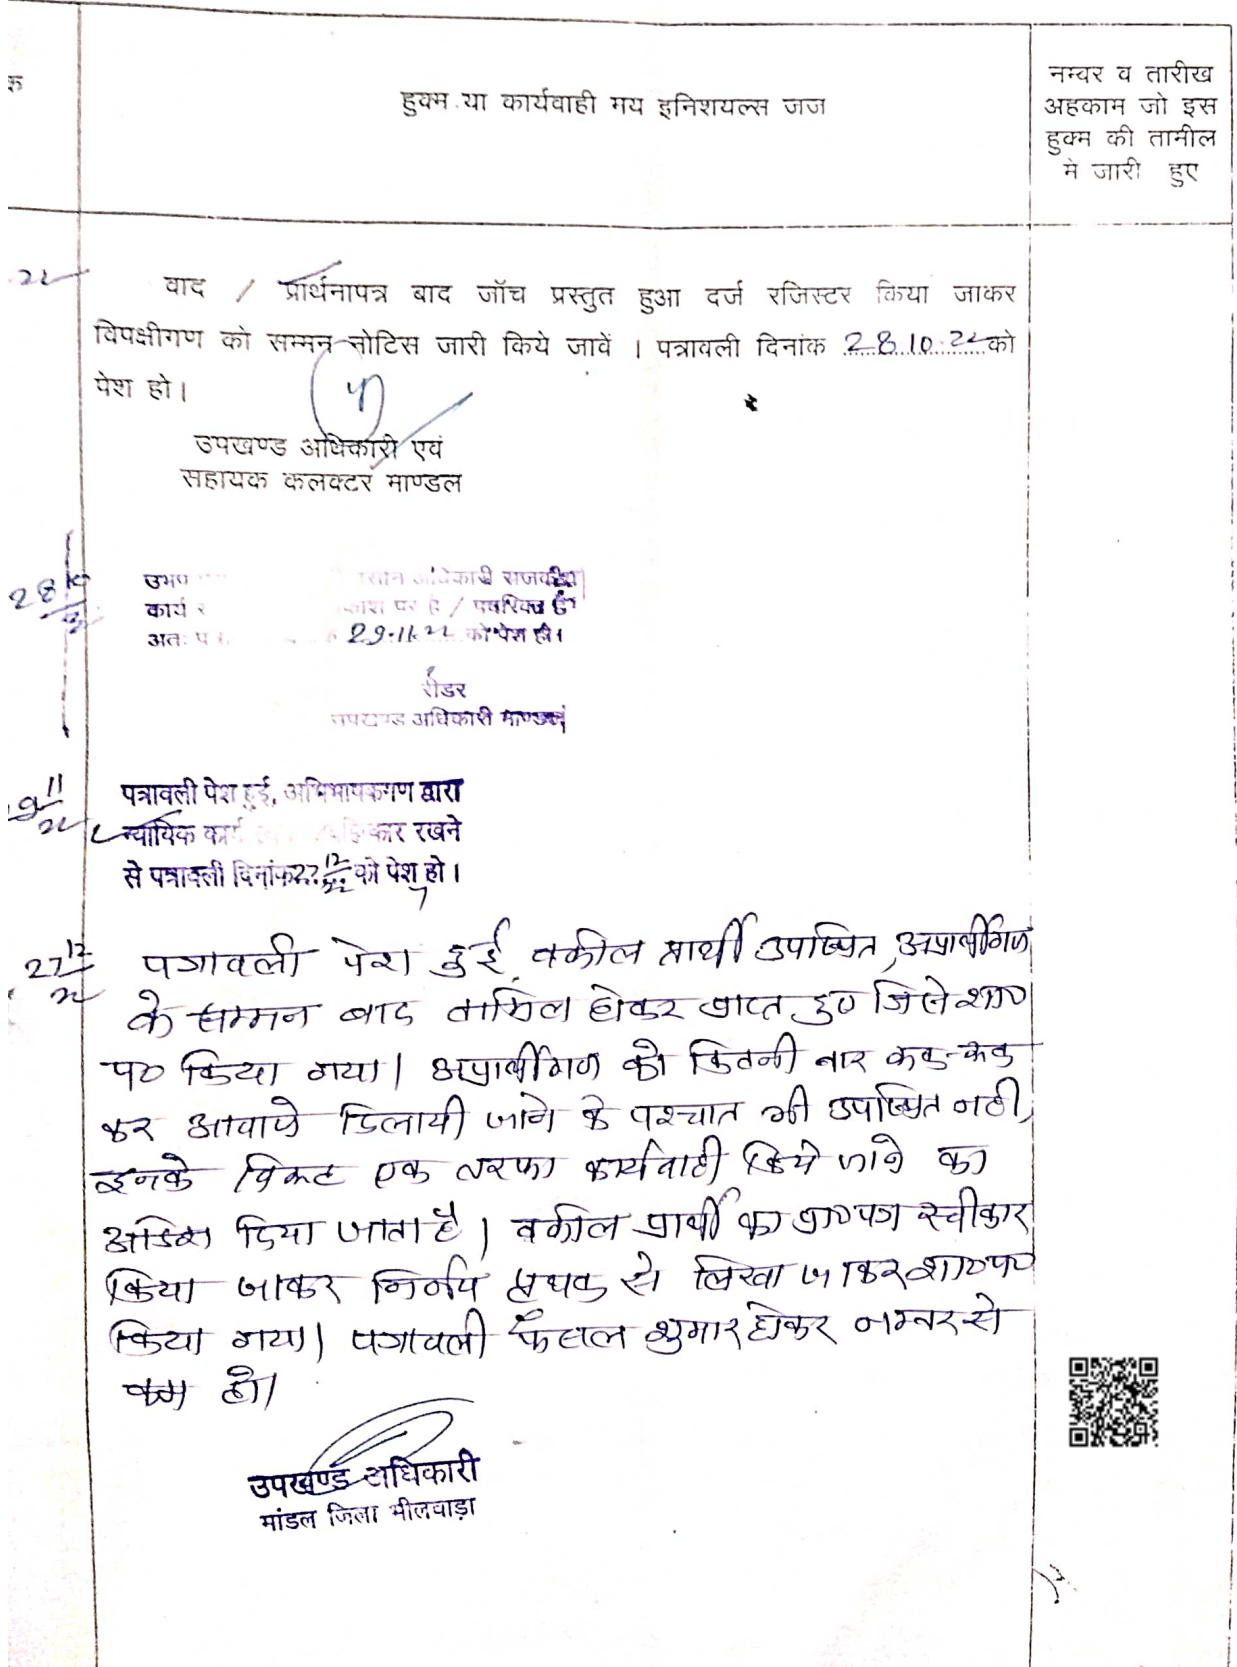 क
हुक्म या कार्यवाही मय इनिशयल्स जज
नम्बर व तारीख
अहकाम जो इस
हुक्म की तामील
मे जारी हुए
22
वाद / प्रार्थनापत्र बाद जॉच प्रस्तुत हुआ दर्ज रजिस्टर किया जाकर
विपक्षीगण को सम्मन नोटिस जारी किये जावें । पत्रावली दिनांक 28.10.22 को
पेश हो।
उपखण्ड अधिकारी एवं
सहायक कलक्टर माण्डल
28
उभप अधिकारी राजकीय
कार्य पर है /
अतः 29.11.22 को पेश हो।
रीडर
उपखण्ड अधिकारी माण्डल
11
22
पत्रावली पेश हुई, अभिभाषकगण द्वारा
न्यायिक कार्य रखने
से पत्रावली दिनांक 27 12/22 को पेश हो।
27 12/22
पत्रावली पेश हुई, वकील प्रार्थी उपस्थित, अप्रार्थीगण
के सम्मन बाद तामिल होकर प्राप्त हुए जिसे शा०
प० किया गया। अप्रार्थीगण को कितनी बार कह-कह
कर आवाजे दिलायी जाने के पश्चात भी उपस्थित नही,
इनके विरूद्ध एक तरफा कार्यवाही किये जाने का
आदेश दिया जाता है। वकील प्रार्थी का प्रा०पत्र स्वीकार
किया जाकर निर्णय पृथक से लिखा जाकर शा०प०
किया गया। पत्रावली फैसल शुमार होकर नम्बर से
कम हो।
उपखण्ड अधिकारी
मांडल जिला भीलवाड़ा